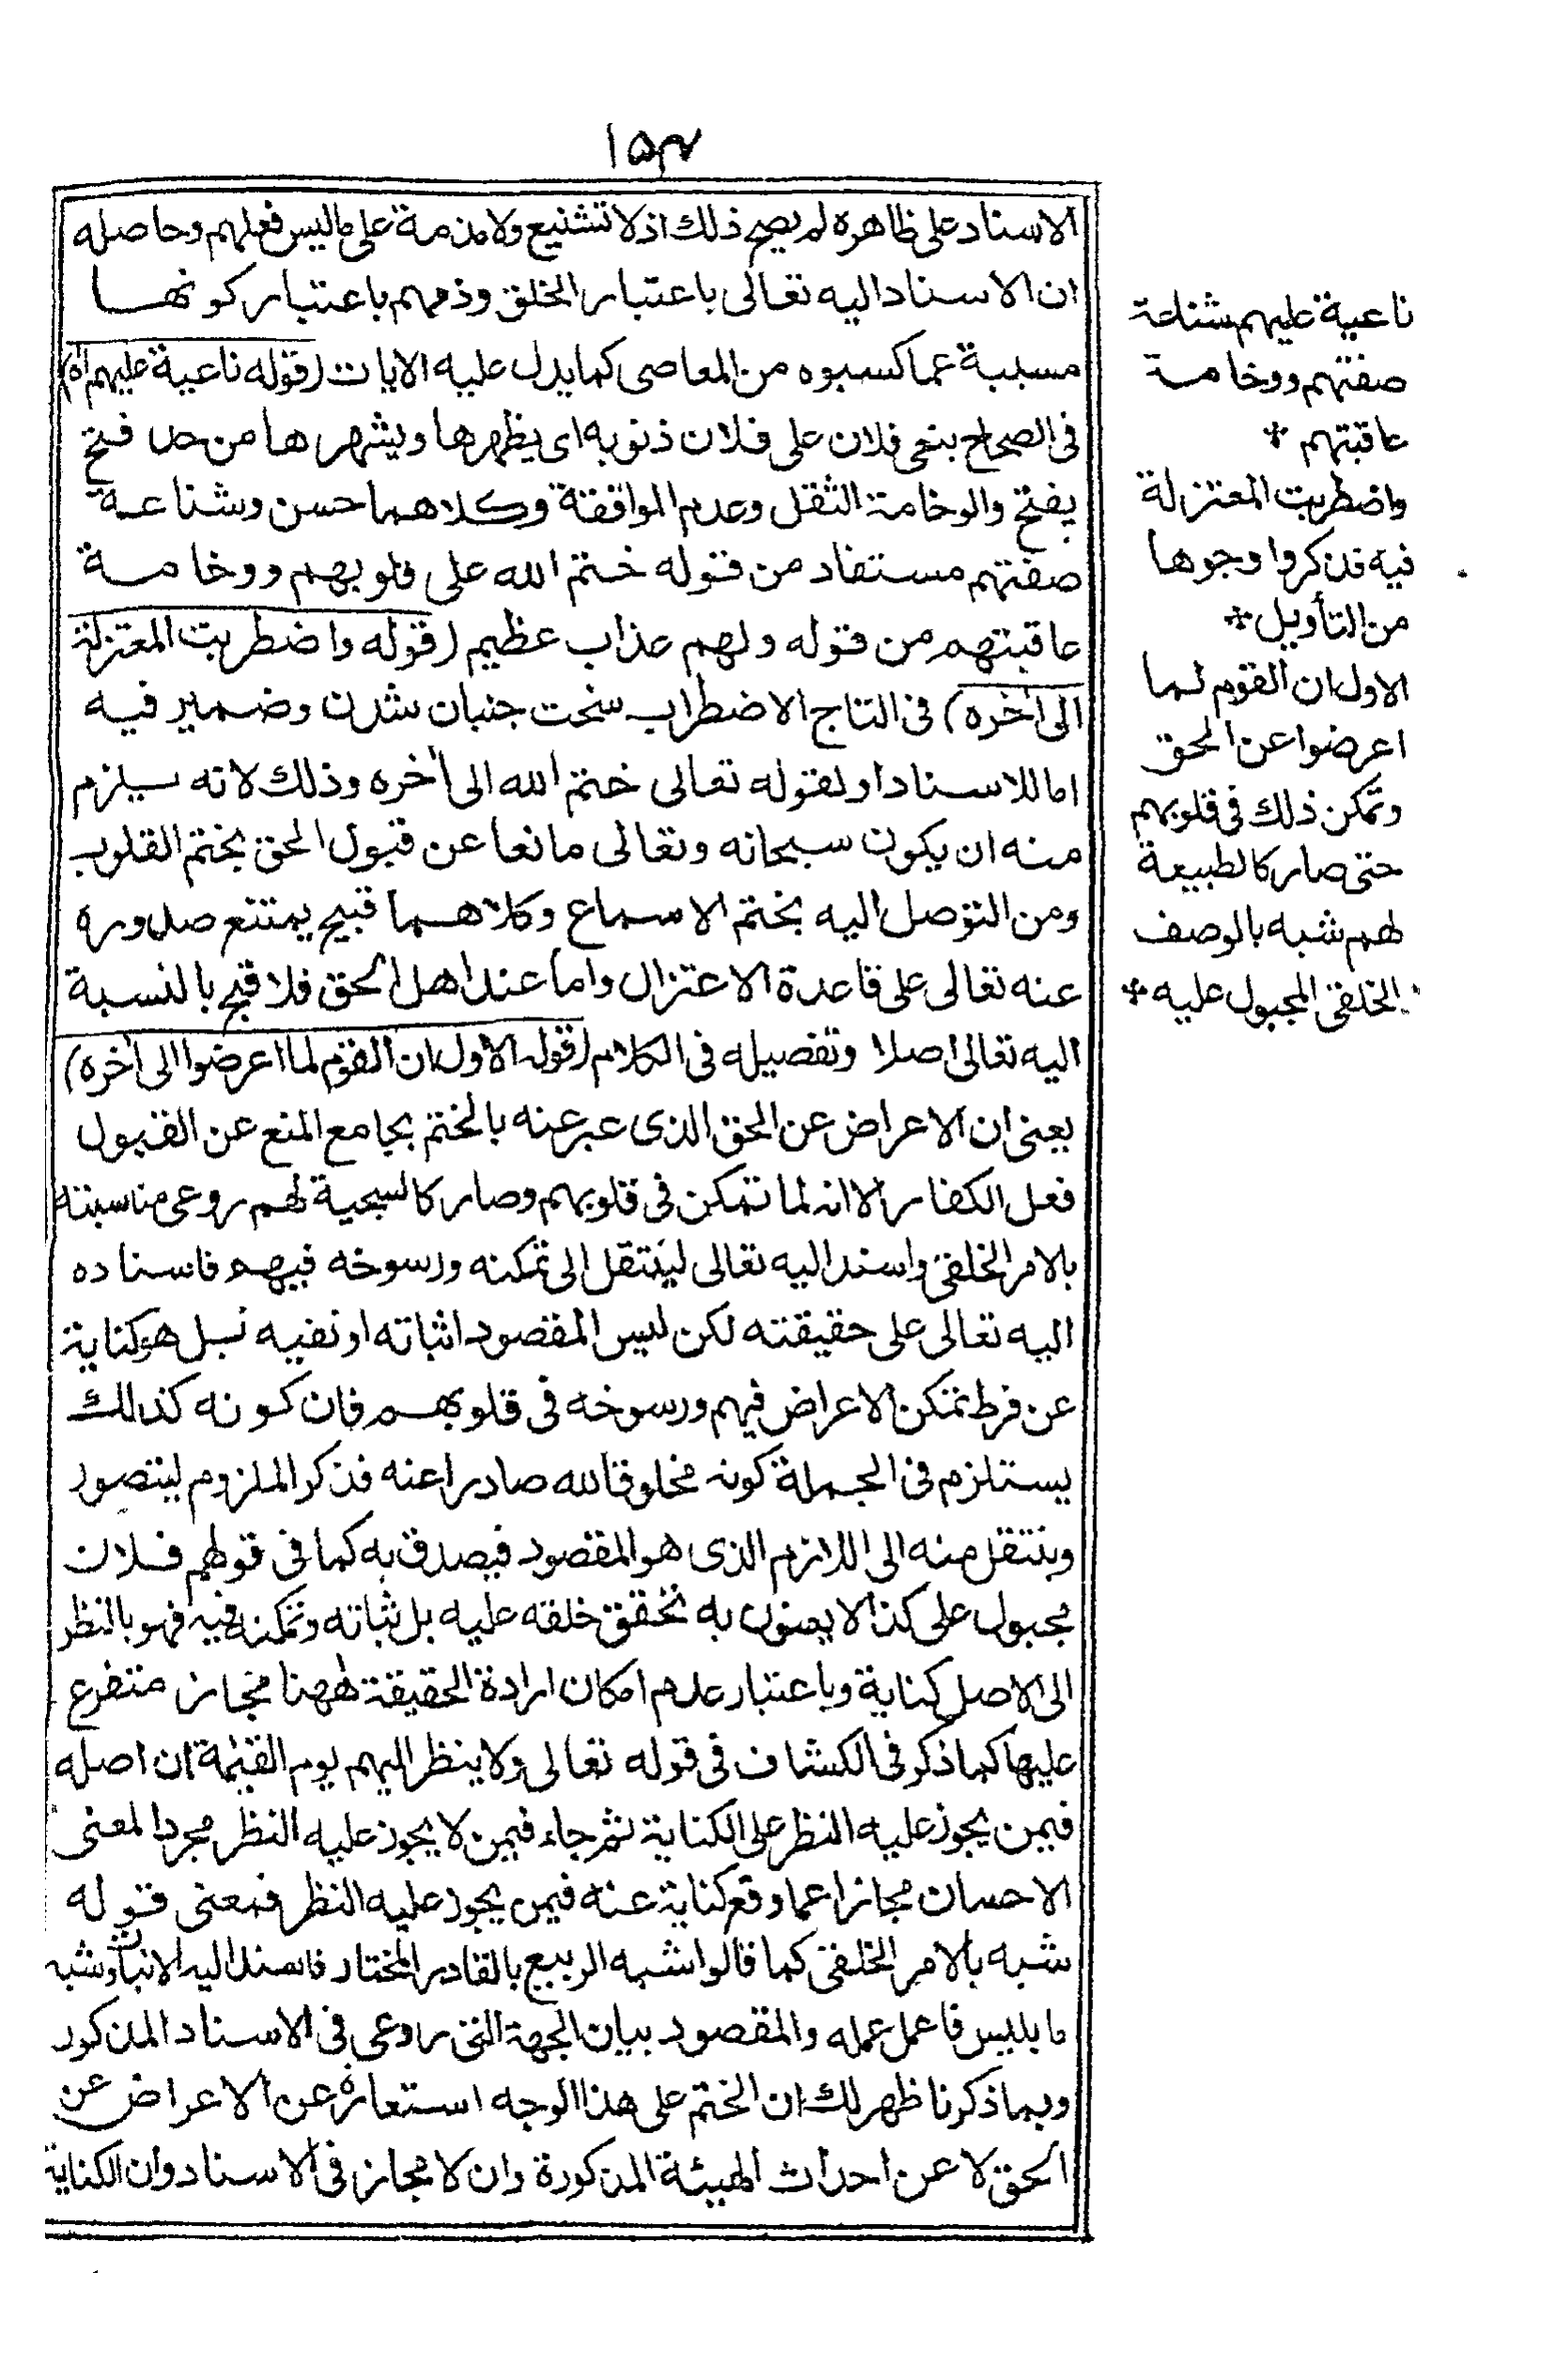 ١٥٣
الاسناد على ظاهره لم يصح ذلك اذ لا تشنيع ولا مذمة على ماليس فعلهم وحاصله
ان الاسناد اليه تعالى باعتبار الخلق وذمهم باعتبار كونهـــا
مسببة عما كسبوه من المعاصى كما يدل عليه الايات (قوله ناعية عليهم اه)
فى الصحاح ينعى فلان على فلان ذنوبه اى يظهرها ويشهرها من حد فتح
يفتح والوخامة الثقل وعدم الموافقة وكلاهما حسن وشناعة
صفتهم مستفاد من قوله ختم الله على قلوبهم ووخامة
عاقبتهم من قوله ولهم عذاب عظيم (قوله واضطربت المعتزلة
الى آخره) فى التاج الاضطراب سخت جنبان شدن وضمير فيه
اما للاسناد او لقوله تعالى ختم الله الى آخره وذلك لانه يلزم
منه ان يكون سبحانه وتعالى مانعا عن قبول الحق بختم القلوب
ومن التوصل اليه بختم الاسماع وكلاهما قبيح يمتنع صدوره
عنه تعالى على قاعدة الاعتزال واما عند اهل الحق فلا قبح بالنسبة
اليه تعالى اصلا وتفصيله فى الكلام (قوله الاول ان القوم لما اعرضوا الى آخره)
يعنى ان الاعراض عن الحق الذى عبر عنه بالختم بجامع المنع عن القبول
فعل الكفار الا انه لما تمكن فى قلوبهم وصار كالسجية لهم روعى مناسبته
بالامر الخلقى واسند اليه تعالى لينتقل الى تمكنه ورسوخه فيهم فاسناده
اليه تعالى على حقيقته لكن ليس المقصود اثباته او نفيه بل هو كناية
عن فرط تمكن الاعراض فيهم ورسوخه فى قلوبهم فان كونه كذالك
يستلزم فى الجملة كونه مخلوقا لله صادرا عنه فذكر الملزوم ليتصور
وينتقل منه الى اللازم الذى هو المقصود فيصدق به كما فى قولهم فلان
مجبول على كذا لا يعنون به تحقق خلقه عليه بل ثباته وتمكنه فيه فهو بالنظر
الى الاصل كناية وباعتبار عدم امكان ارادة الحقيقة ههنا مجاز متفرع
عليها كما ذكر فى الكشاف فى قوله تعالى ولا ينظر اليهم يوم القيٰمة ان اصله
فيمن يجوز عليه النظر على الكناية ثم جاء فيمن لا يجوز عليه النظر مجردا لمعنى
الاحسان مجازا عما وقع كناية عنه فيمن يجوز عليه النظر فمعنى قوله
شبه بالامر الخلقى كما قالوا شبه الربيع بالقادر المختار فاسند اليه الانبات وشبه
ما بليس فاعمل عمله والمقصود بيان الجهة التى روعى فى الاسناد المذكور
وبما ذكرنا ظهر لك ان الختم على هذا الوجه استعارة عن الاعراض عن
الحق لا عن احداث الهيئة المذكورة وان لا مجاز فى الاسناد وان الكناية
ناعية عليهم شناعة
صفتهم ووخامة
عاقبتهم *
واضطربت المعتزلة
فيه فذكروا وجوها
من التأويل *
الاول ان القوم لما
اعرضوا عن الحق
وتمكن ذلك فى قلوبهم
حتى صار كالطبيعة
لهم شبه بالوصف
الخلقى المجبول عليه *